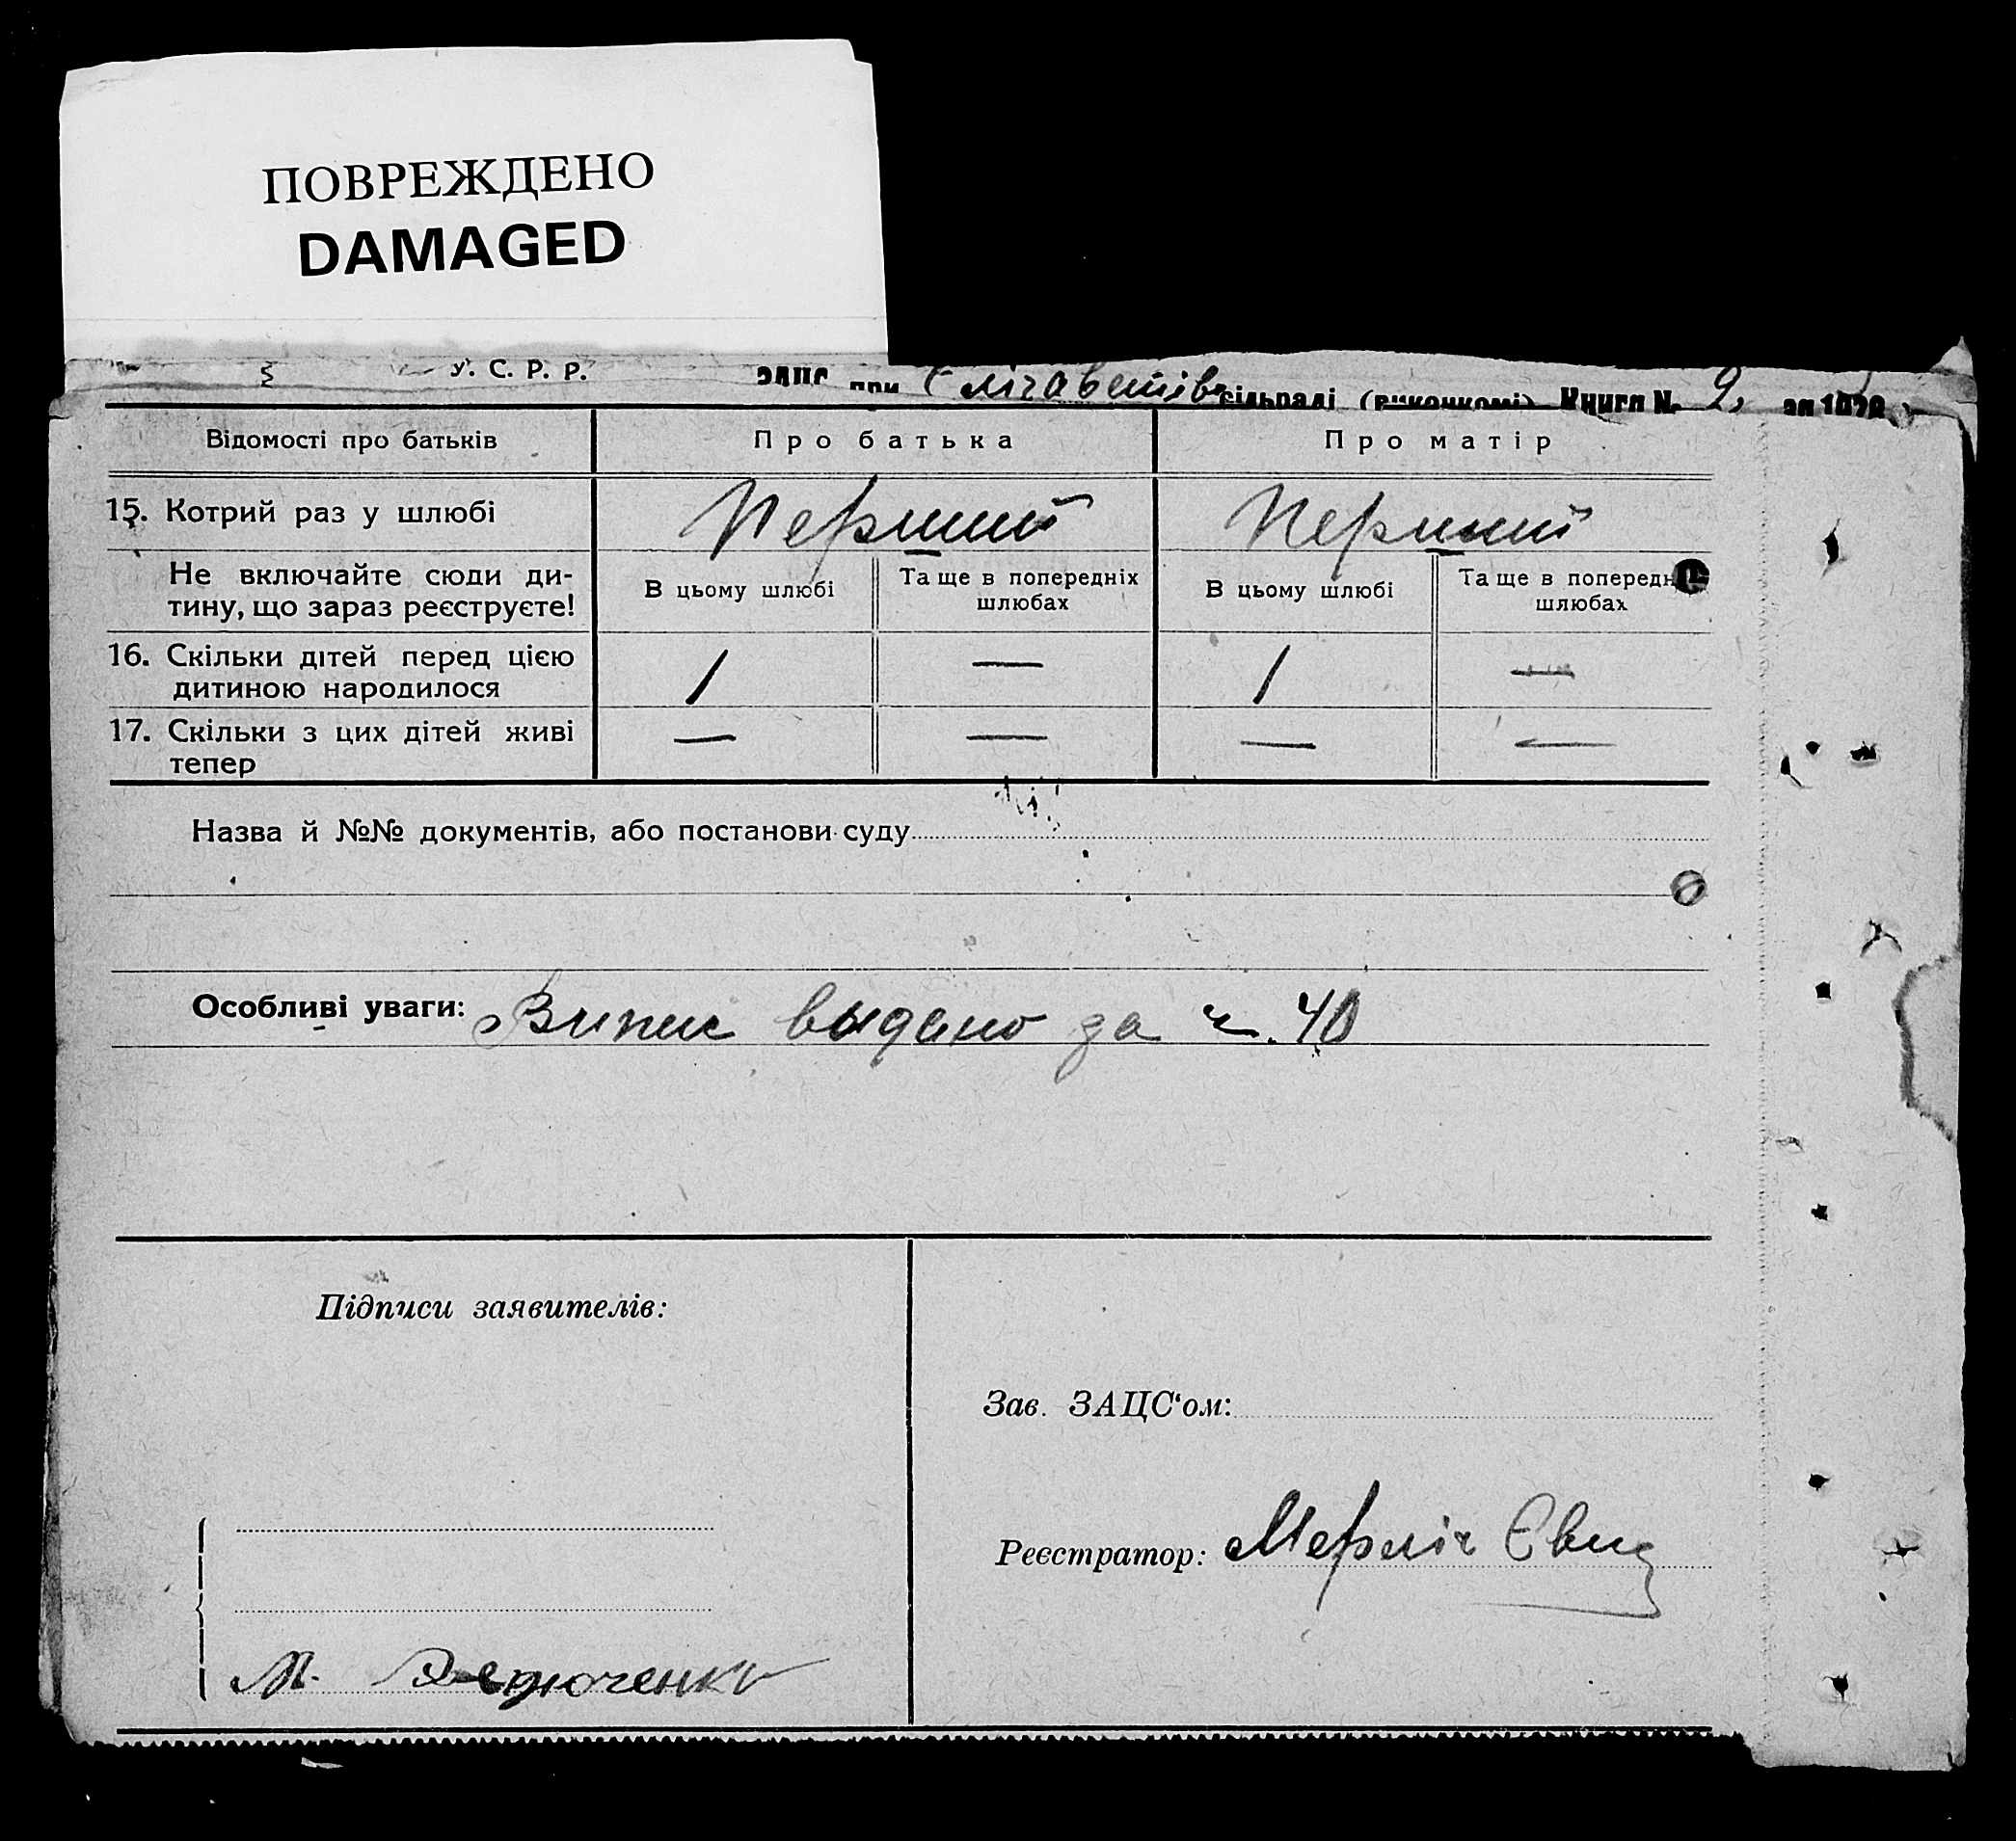 ПОВРЕЖДЕНО
DAMAGED
У. С. Р. Р. ЗАЦС при Єлізаветівс сільраді (виконкомі) Книга № 2, за 192
Відомості про батьків Про батька Про матір
15. Котрий раз у шлюбі Перший Перший
Не включайте сюди ди-
тину, що зараз реєструєте!
В цьому шлюбі
Та ще в попередніх
шлюбах
В цьому шлюбі
Та ще в попередн
шлюбах
16. Скільки дітей перед цією
дитиною народилося
1 — 1 —
17. Скільки з цих дітей живі
тепер
— — — —
Назва й №№ документів, або постанови суду
Особливі уваги: Випис выдано за ч. 40
Підписи заявителів:
Зав. ЗАЦС‘ом:
Реєстратор:
М.